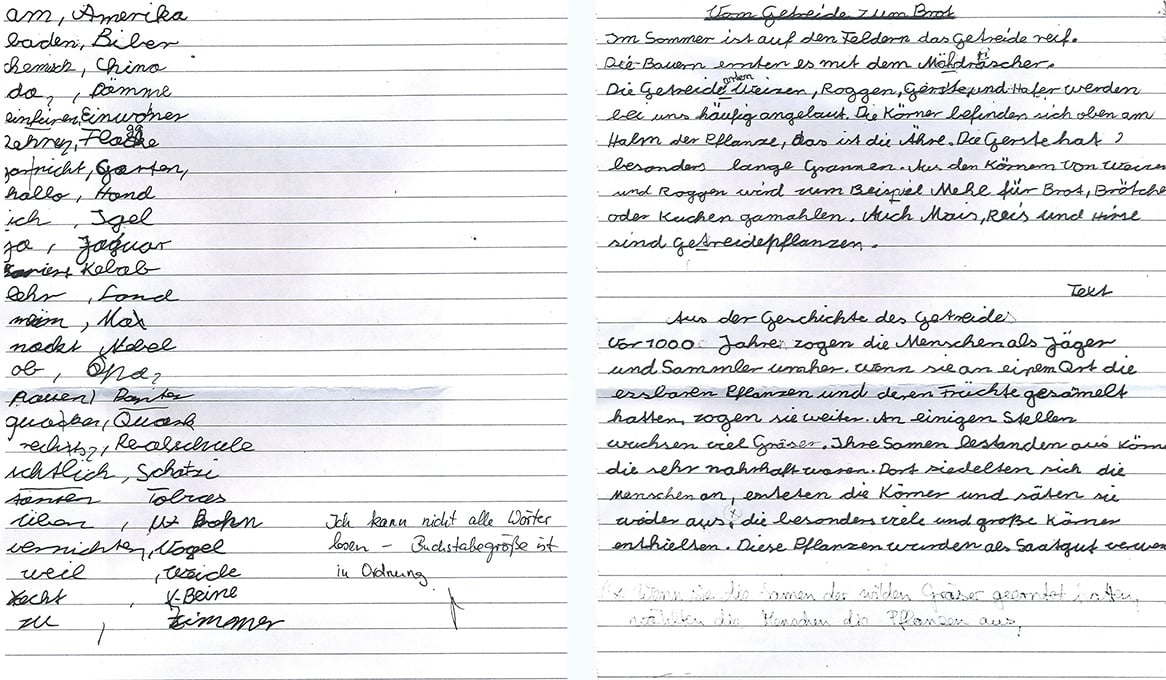 am, Amerika
baden, Biber
chemisch, China
da?, Dämme
einfüren, Einwohner
Zehren, Flagge
garnicht, Garten,
hallo, Hand
ich, Igel
ja, Jaguar
Kebab
sehr, Land
mein, Max
nackt Nebel
ob, Opa?
Panter
quaken, Quark
rechts?, Realschule
schtlich, Schatzi
Tobias
üben, U-Bahn
vernichten, Vogel
weil, Weide
X-Beine
zu, Zimmer
Ich kann nicht alle Wörter
lesen – Buchstabegröße ist
in Ordnung
Vom Getreide zum Brot
Im Sommer ist auf den Feldern das Getreide reif.
Die Bauern ernten es mit dem Mähdräscher.
Die Getreidearten Weizen, Roggen, Gerste und Hafer werden
bei uns häufig angebaut. Die Körner befinden sich oben am
Halm der Pflanze, das ist die Ähre. Die Gerste hat ?
besonders lange Grannen. Aus den Körnern von Weizen
und Roggen wird zum Beispiel Mehl für Brot, Brötche
oder Kuchen gamahlen. Auch Mais, Reis und Hirse
sind Getreidepflanzen.
Text
Aus der Geschichte des Getreides
Vor 1000 Jahren zogen die Menschen als Jäger
und Sammler umher. Wenn sie an einem Ort die
essbaren Pflanzen und deren Früchte gesamelt
hatten, zogen sie weiter. An einigen Stellen
wuchsen viel Gräser. Ihre Samen bestanden aus Körne
die sehr nahrhaft waren. Dort siedelten sich die
Menschen an, ernteten die Körner und säten sie
wieder aus, die besonders viele und große Körner
enthielten. Diese Pflanzen wurden als Saatgut verwen
Wenn sie die Samen der wilden Gräser geerntet hatten,
wählten die Menschen die Pflanzen aus,